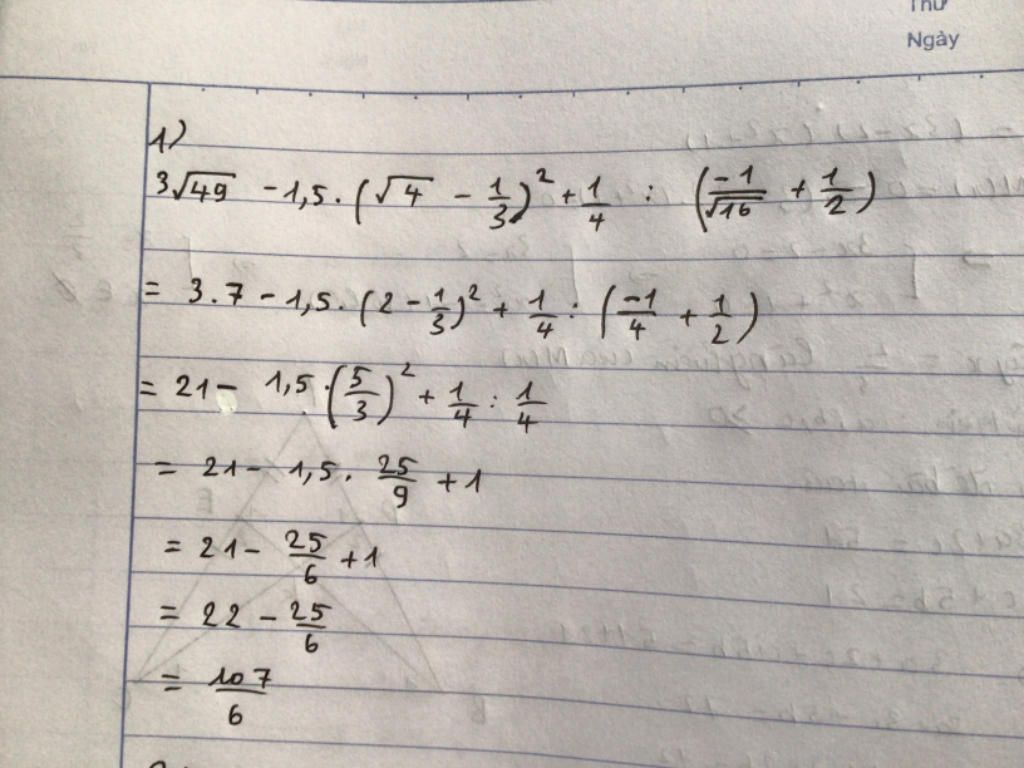 Thứ
Ngày
1)
3√49 - 1,5 . (√4 - 1/3)² + 1/4 : (-1/√16 + 1/2)
= 3.7 - 1,5 . (2 - 1/3)² + 1/4 : (-1/4 + 1/2)
= 21 - 1,5 . (5/3)² + 1/4 : 1/4
= 21 - 1,5 . 25/9 + 1
= 21 - 25/6 + 1
= 22 - 25/6
= 107/6